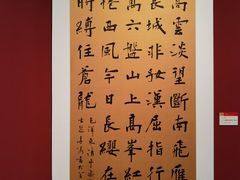 高雲淡望斷南飛雁
長城非好漢屈指行
萬六盤山上高峰紅
捲西風今日長纓在
時縛住蒼龍
毛澤東清平樂